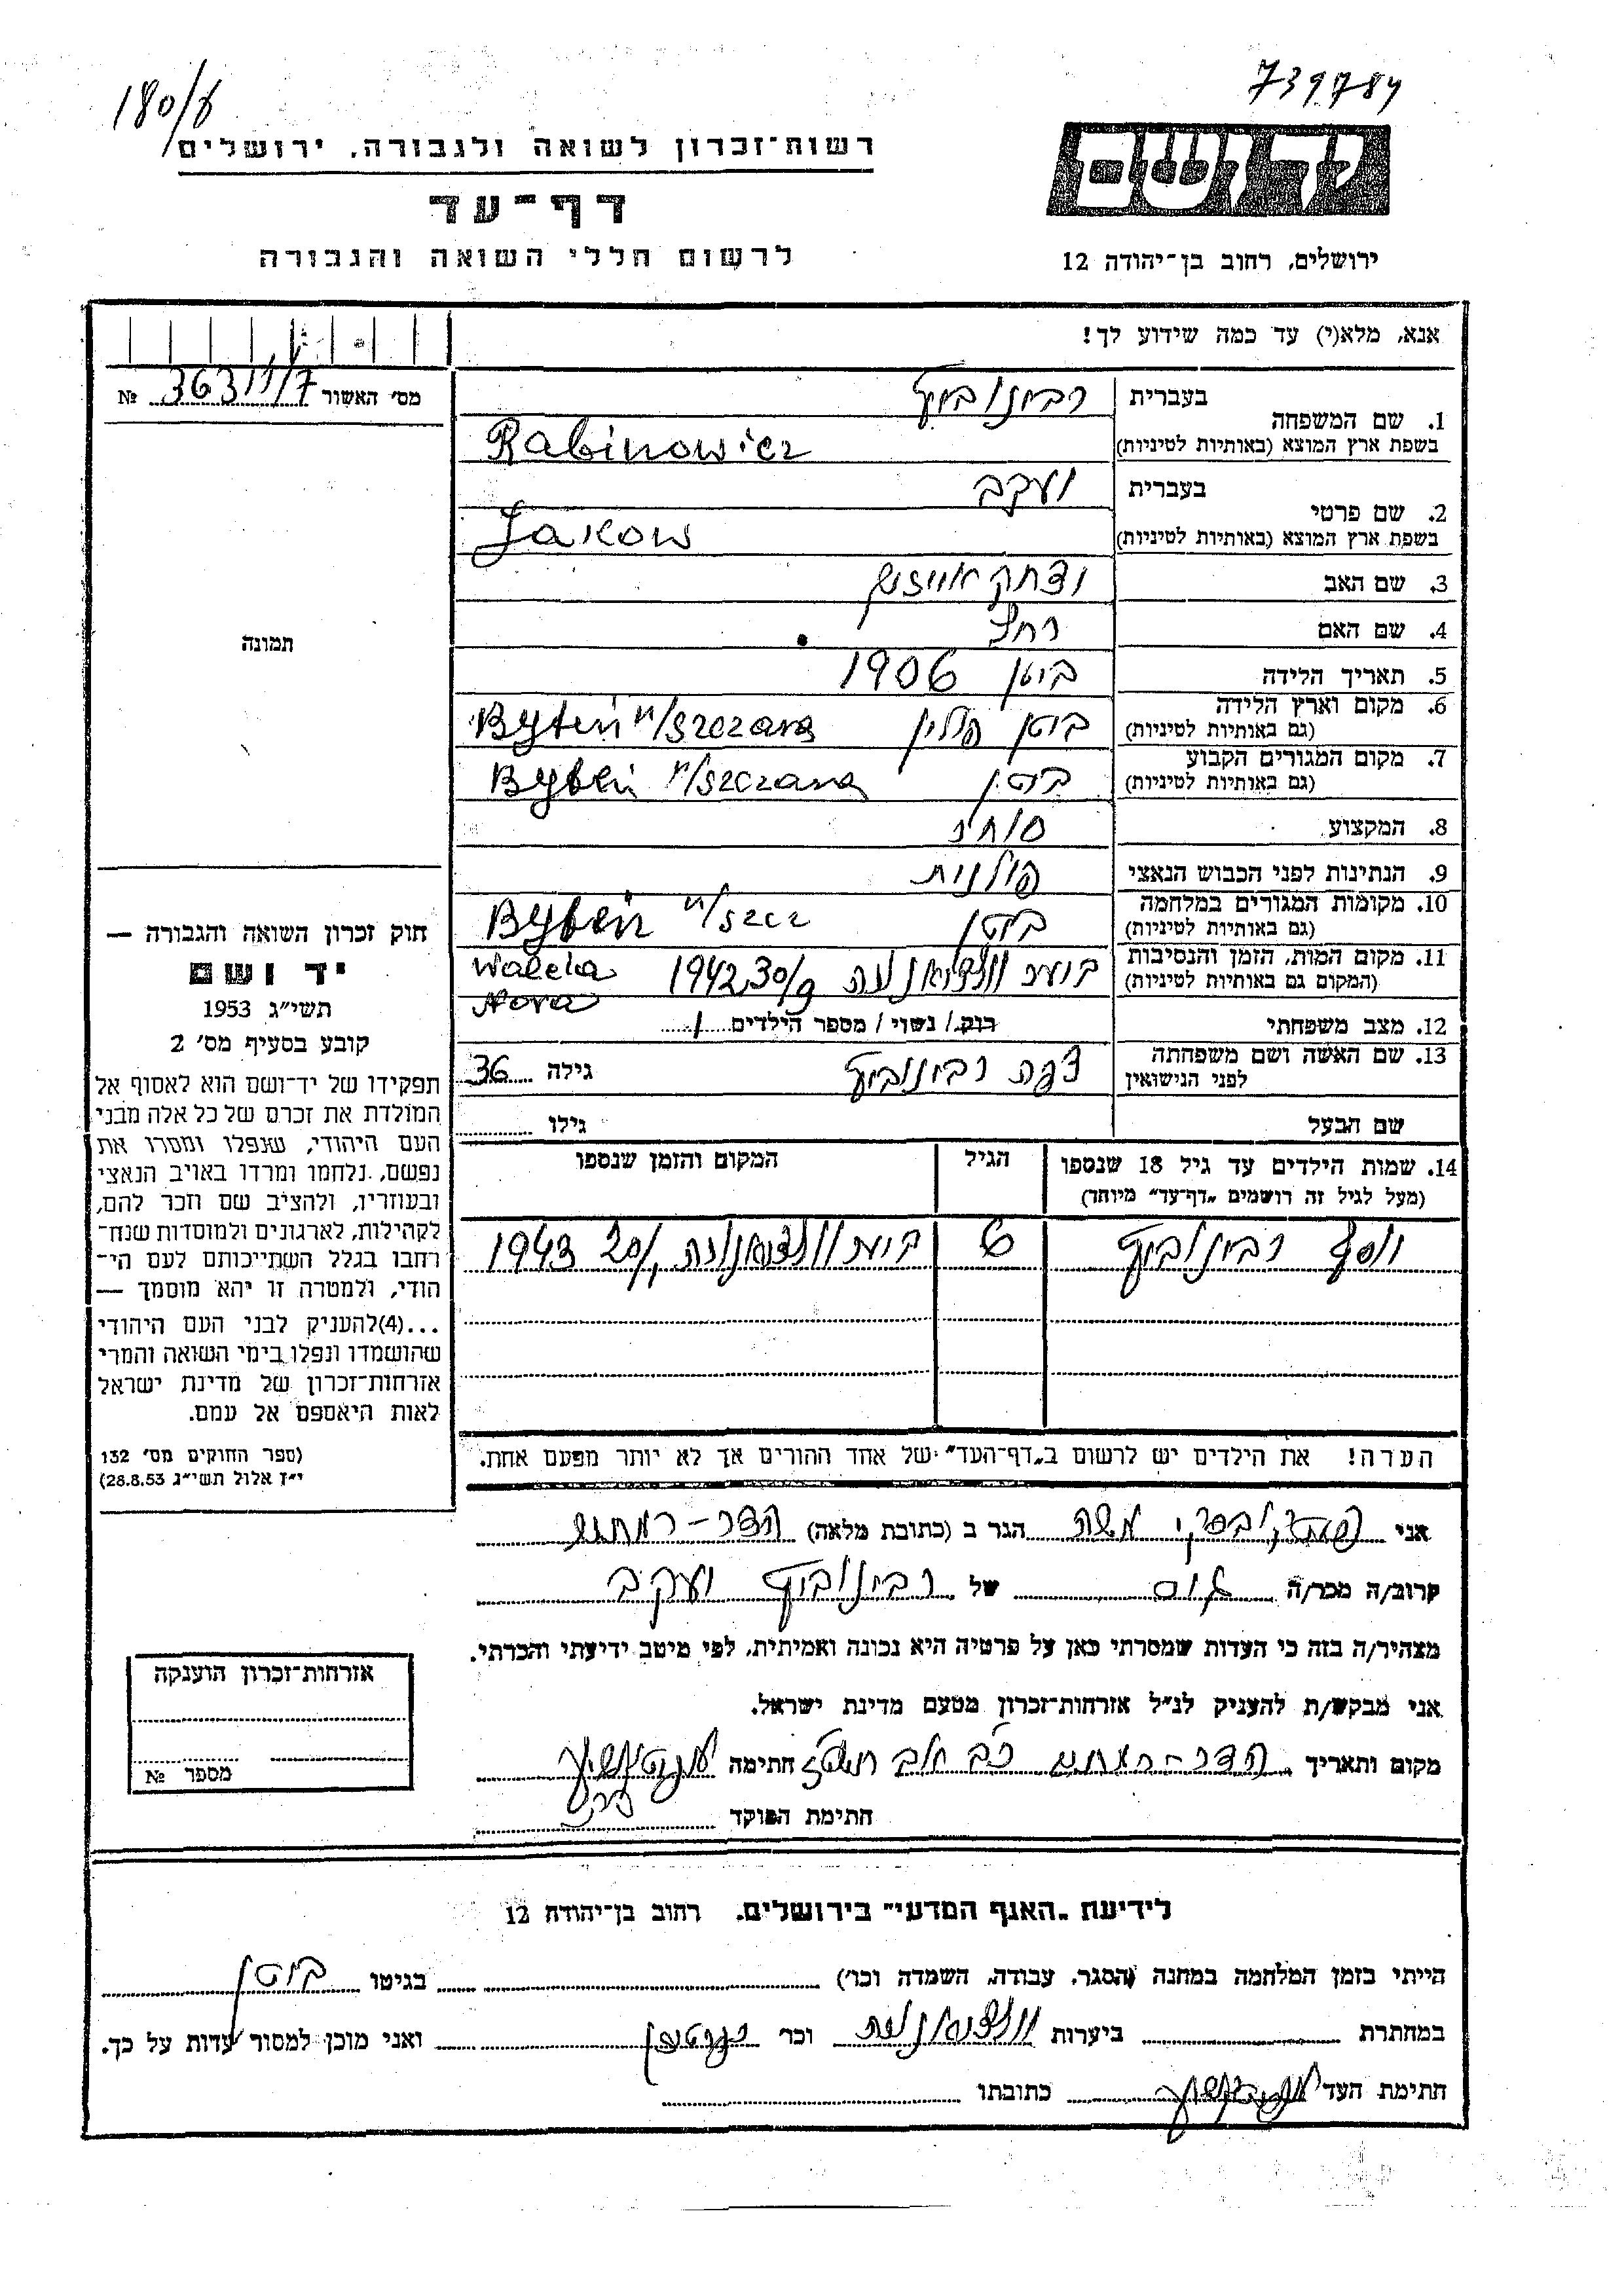 180/8
739784
רשות־זכרון לשואה ולגבורה, ירושלים
יד ושם
דף־עד
לרשום חללי השואה והגבורה
ירושלים, רחוב בן־יהודה 12
אנא, מלא(י) עד כמה שידוע לך!
מס׳ האשור № 36311/7
1. שם המשפחה בעברית רבינוביץ
בשפת ארץ המוצא (באותיות לטיניות) Rabinowicz
2. שם פרטי בעברית יעקב
בשפת ארץ המוצא (באותיות לטיניות) Jakow
3. שם האב יצחק
4. שם האם רחל
5. תאריך הלידה ביטן 1906
6. מקום וארץ הלידה (גם באותיות לטיניות) ביטן פולין Byteń n/Szczarą
7. מקום המגורים הקבוע (גם באותיות לטיניות) ביטן Byteń n/Szczarą
8. המקצוע סוחר
9. הנתינות לפני הכבוש הנאצי פולנית
10. מקומות המגורים במלחמה (גם באותיות לטיניות) ביטן Byteń n/Szcz
11. מקום המות, הזמן והנסיבות (המקום גם באותיות לטיניות) 1942 30/9
12. מצב משפחתי רווק / נשוי / מספר הילדים 1
13. שם האשה ושם משפחתה לפני הנישואין רבינוביץ גילה 36
שם הבעל גילו
14. שמות הילדים עד גיל 18 שנספו (מעל לגיל זה רושמים „דף־עד״ מיוחד) הגיל המקום והזמן שנספו
יוסף רבינוביץ 1943
הערה! את הילדים יש לרשום ב„דף־העד״ של אחד ההורים אך לא יותר מפעם אחת.
תמונה
חוק זכרון השואה והגבורה —
יד ושם
תשי״ג 1953
קובע בסעיף מס׳ 2
תפקידו של יד־ושם הוא לאסוף אל
המולדת את זכרם של כל אלה מבני
העם היהודי, שנפלו ומסרו את
נפשם, נלחמו ומרדו באויב הנאצי
ובעוזריו, ולהציב שם וזכר להם,
לקהילות, לארגונים ולמוסדות שנח־
רחבו בגלל השתייכותם לעם הי־
הודי, ולמטרה זו יהא מוסמך —
...(4)להעניק לבני העם היהודי
שהושמדו ונפלו בימי השואה והמרי
אזרחות־זכרון של מדינת ישראל
לאות היאספם אל עמם.
(ספר החוקים מס׳ 132
י״ז אלול תשי״ג 28.8.53)
אני משה הגר ב (כתובת מלאה) הדר-רמתים
קרוב/ה מכר/ה גיס של רבינוביץ יעקב
מצהיר/ה בזה כי העדות שמסרתי כאן על פרטיה היא נכונה ואמיתית, לפי מיטב ידיעתי והכרתי.
אני מבקש/ת להעניק לנ״ל אזרחות־זכרון מטעם מדינת ישראל.
מקום ותאריך הדר-רמתים חתימה
חתימת הפוקד
אזרחות־זכרון הוענקה
מספר №
לידיעת „האגף המדעי״ בירושלים, רחוב בן־יהודה 12
הייתי בזמן המלחמה במחנה (הסגר, עבודה, השמדה וכו׳) בגיטו ביטן
במחתרת ביערות וכו׳ ואני מוכן למסור עדות על כך.
חתימת העד כתובתו